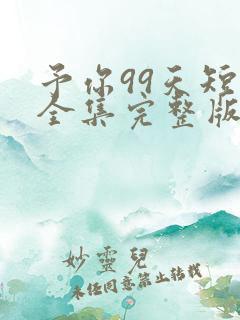 予你99天短
全集完整版
妙靈兒
未经同意禁止转载